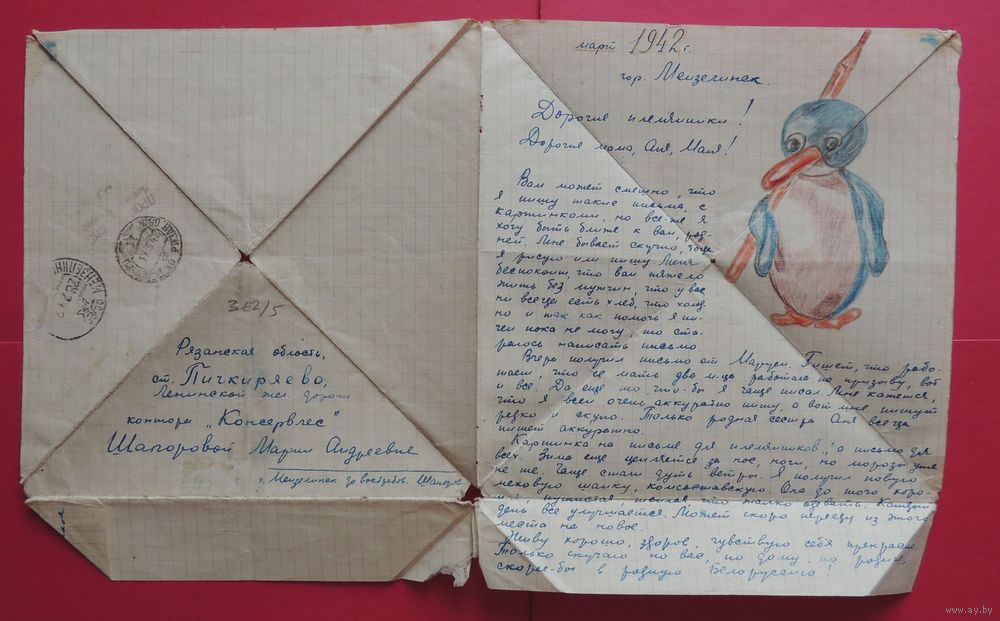 Рязанская область,
ст. Пичкиряево,
Ленинской жел. дороги
контора „Консервлес"
Шапоровой Марии Андреевне
г. Мензелинск до востребов. Шапоров
3Е2/5
март 1942 г.
гор. Мензелинск.
Дорогие племяшики!
Дорогие мама, Аня, Маня!
Вам может смешно, что
я пишу такие письма, с
картинками, но все-же я
хочу быть ближе к вам, род-
ней. Мне бывает скучно, тогда
я рисую или пишу. Меня
беспокоит, что вам тяжело
жить без мужчин, что у вас
не всегда есть хлеб, что холод-
но и так как помочь я ни-
чем пока не могу, то ста-
раюсь написать письмо
Вчера получил письмо от Маруси. Пишет, что рабо-
тает, что ее мать два м-ца работала по призыву, вот
и все. Да еще то что-бы я чаще писал. Мне кажется,
что я всем очень аккуратно пишу, а вот мне пишут
редко и скупо. Только родная сестра Аня всегда
пишет аккуратно.
Картинка на письме для племяшиков, а письмо для
всех. Зима еще цепляется за нос, ноги, но морозы уже
не те. Чаще стали дуть ветры. Я получил новую
меховую шапку, комсоставскую. Она до того хоро-
шая, пушистая что жалко одевать. Каждый
день все улучшается. Может скоро перееду из этого
места на новое.
Живу хорошо, здоров, чувствую себя прекрасно.
Только скучаю по вас, по дому, по родине,
скорее-бы в родную Белоруссию!
www.ay.by